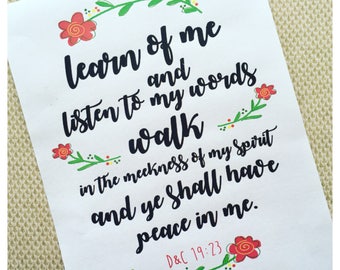 learn of me
and
listen to my words
walk
in the meekness of my spirit
and ye shall have
peace in me.
D&C 19:23